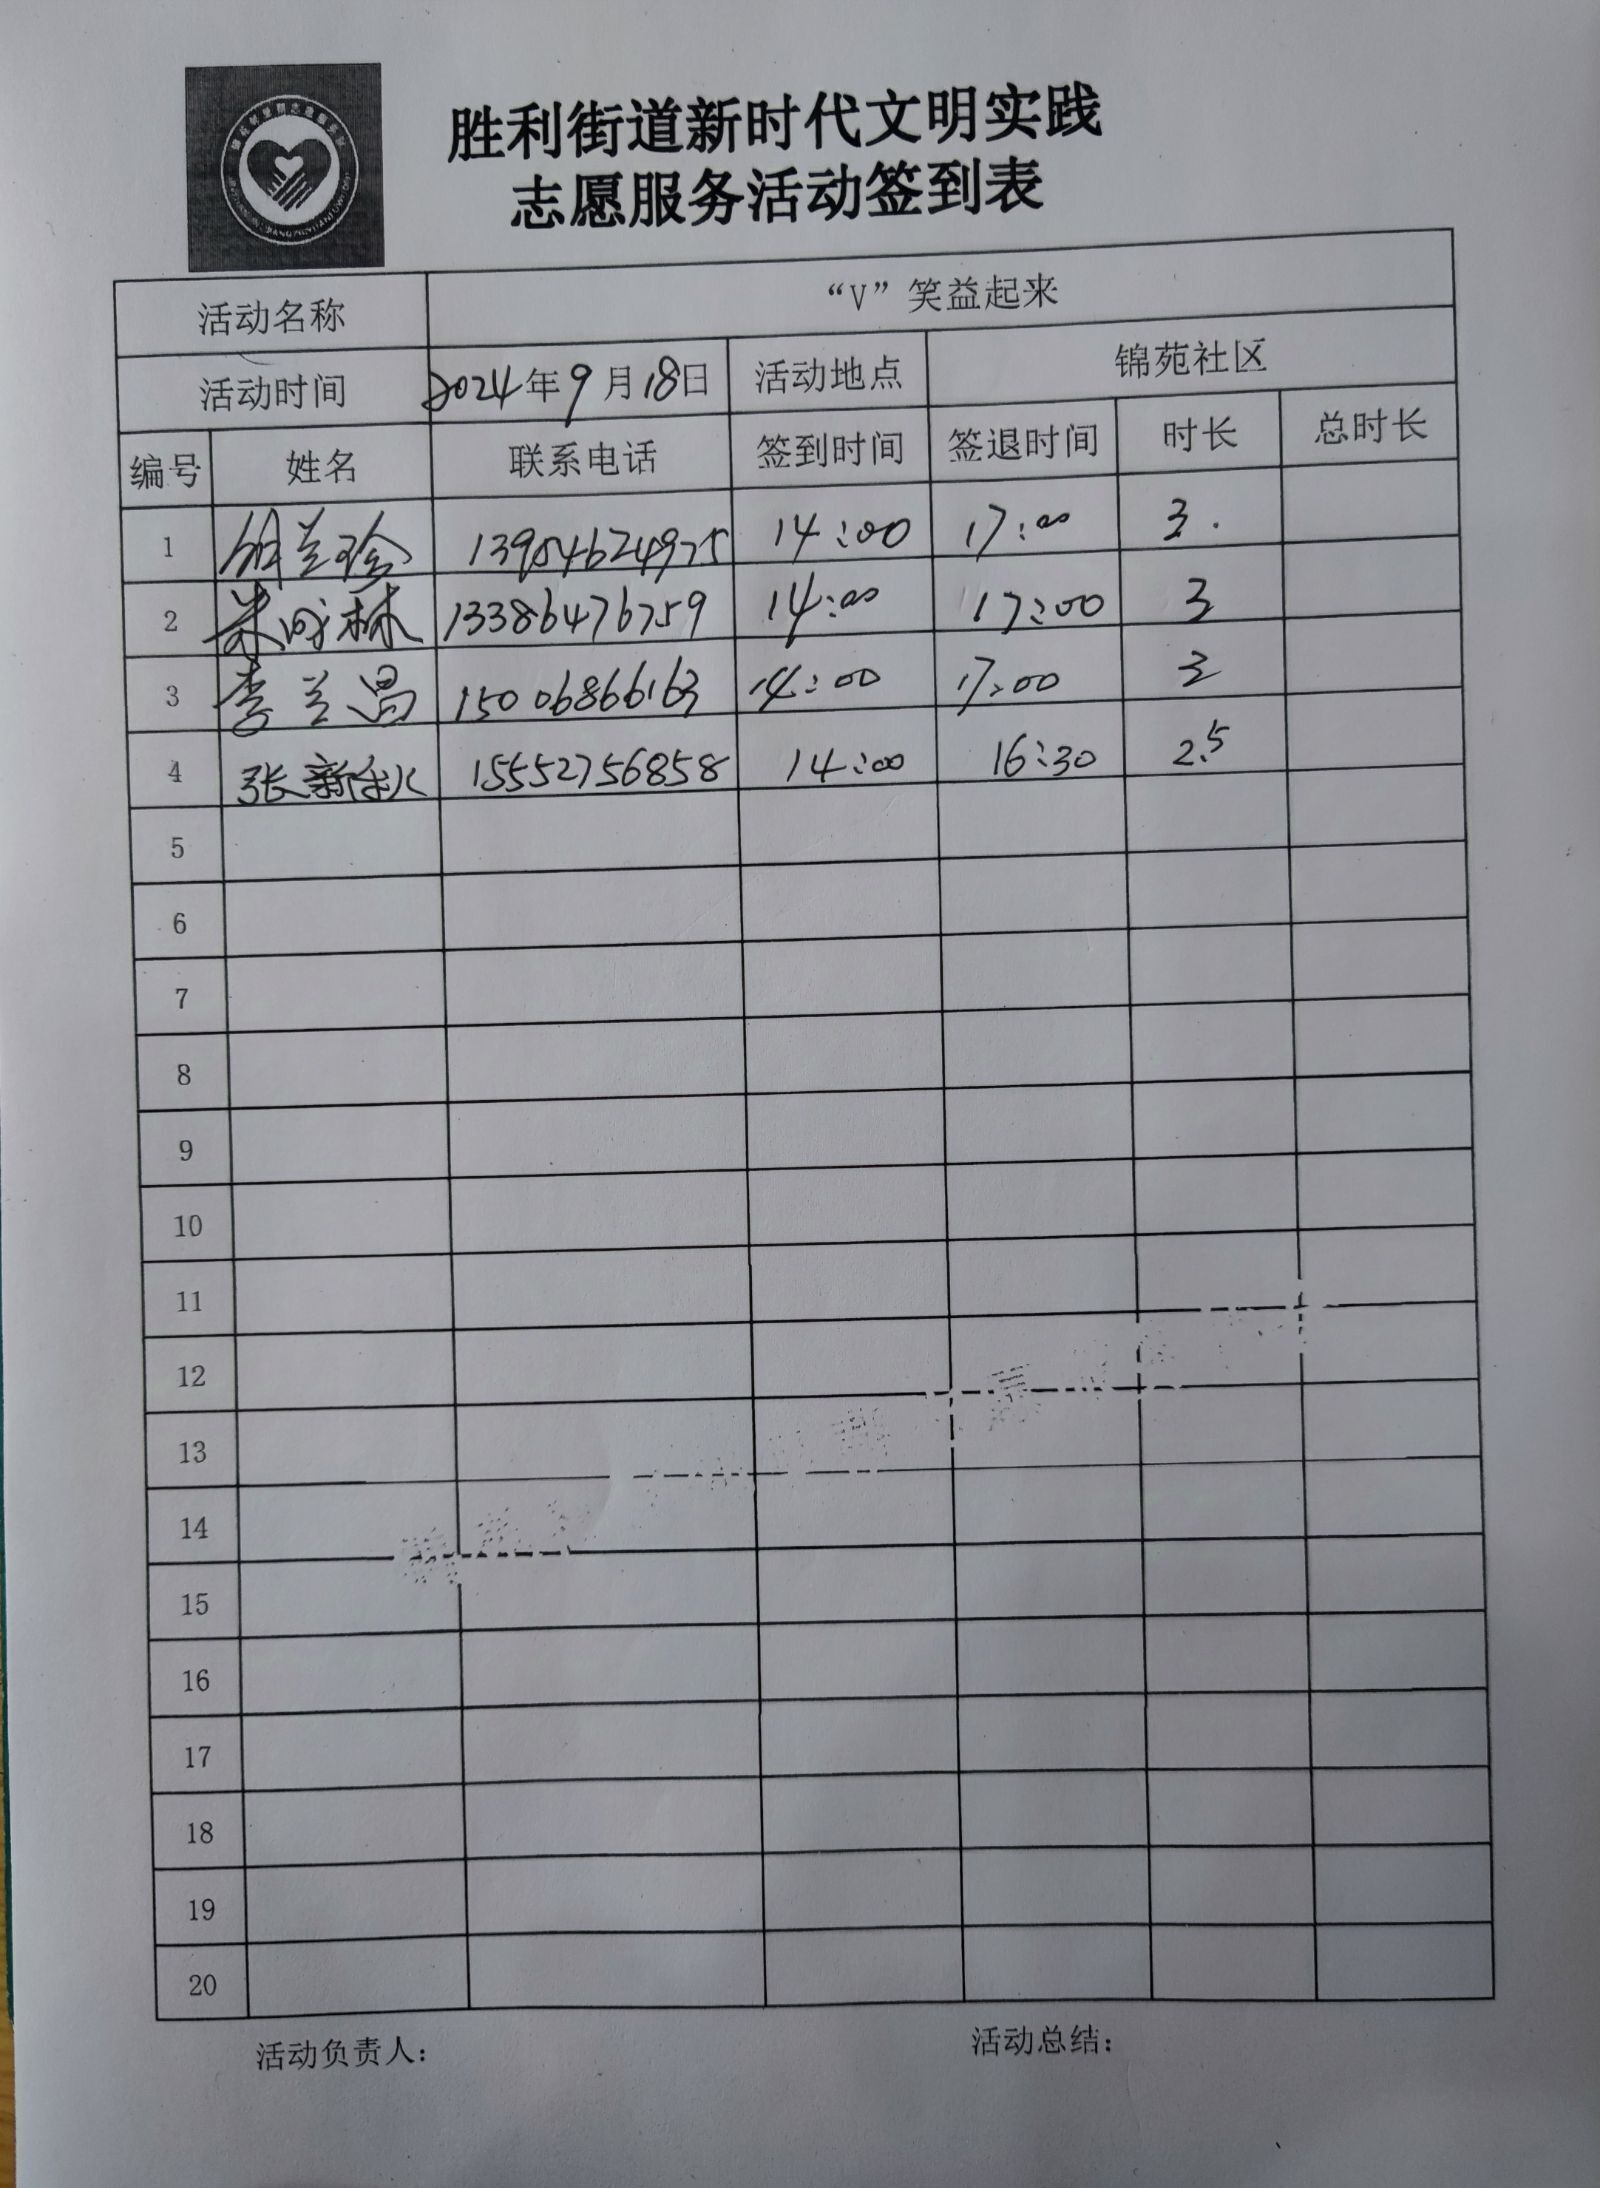 胜利街道新时代文明实践
志愿服务活动签到表
活动名称 “V”笑益起来
活动时间 2024年9月18日 活动地点 锦苑社区
编号 姓名 联系电话 签到时间 签退时间 时长 总时长
1 兰珍 13954624975 14:00 17:00 3.
2 林 13386476759 14:00 17:00 3
3 李兰昌 15006866163 14:00 17:00 3
4 张新秋 15552756858 14:00 16:30 2.5
5
6
7
8
9
10
11
12
13
14
15
16
17
18
19
20
活动负责人: 活动总结: